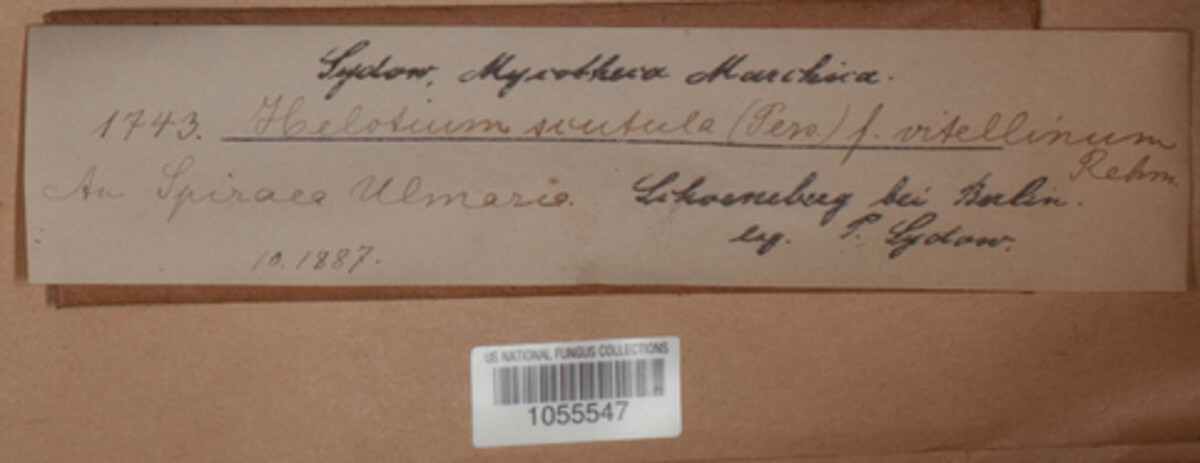 Sydow, Mycotheca Marchica.
1743. Helotium scutula (Pers.) f. vitellinum
Rehm.
An Spiraea Ulmaria. Schoeneberg bei Berlin.
leg. P. Sydow.
10.1887.
US NATIONAL FUNGUS COLLECTIONS
1055547